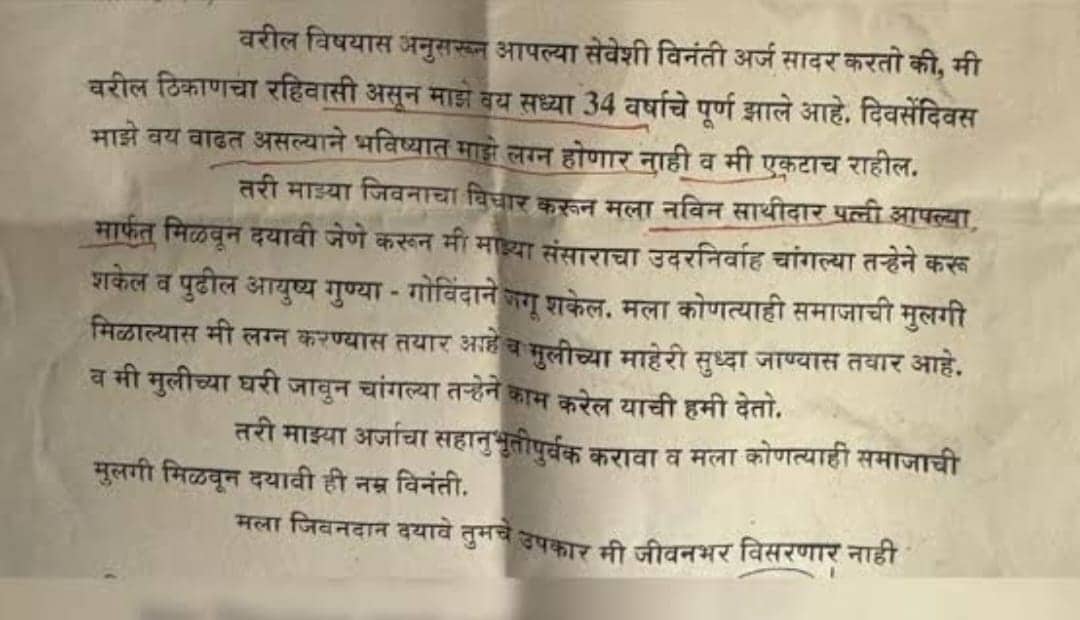 वरील विषयास अनुसरून आपल्या सेवेशी विनंती अर्ज सादर करतो की, मी
वरील ठिकाणचा रहिवासी असून माझे वय सध्या 34 वर्षाचे पूर्ण झाले आहे. दिवसेंदिवस
माझे वय वाढत असल्याने भविष्यात माझे लग्न होणार नाही व मी एकटाच राहील.
तरी माझ्या जिवनाचा विचार करून मला नविन साथीदार पत्नी आपल्या
मार्फत मिळवून दयावी जेणे करून मी माझ्या संसाराचा उदरनिर्वाह चांगल्या तऱ्हेने करू
शकेल व पुढील आयुष्य गुण्या - गोविंदाने जगू शकेल. मला कोणत्याही समाजाची मुलगी
मिळाल्यास मी लग्न करण्यास तयार आहे व मुलीच्या माहेरी सुध्दा जाण्यास तयार आहे.
व मी मुलीच्या घरी जावुन चांगल्या तऱ्हेने काम करेल याची हमी देतो.
तरी माझ्या अर्जाचा सहानुभुतीपुर्वक करावा व मला कोणत्याही समाजाची
मुलगी मिळवून दयावी ही नम्र विनंती.
मला जिवनदान दयावे तुमचे उपकार मी जीवनभर विसरणार नाही